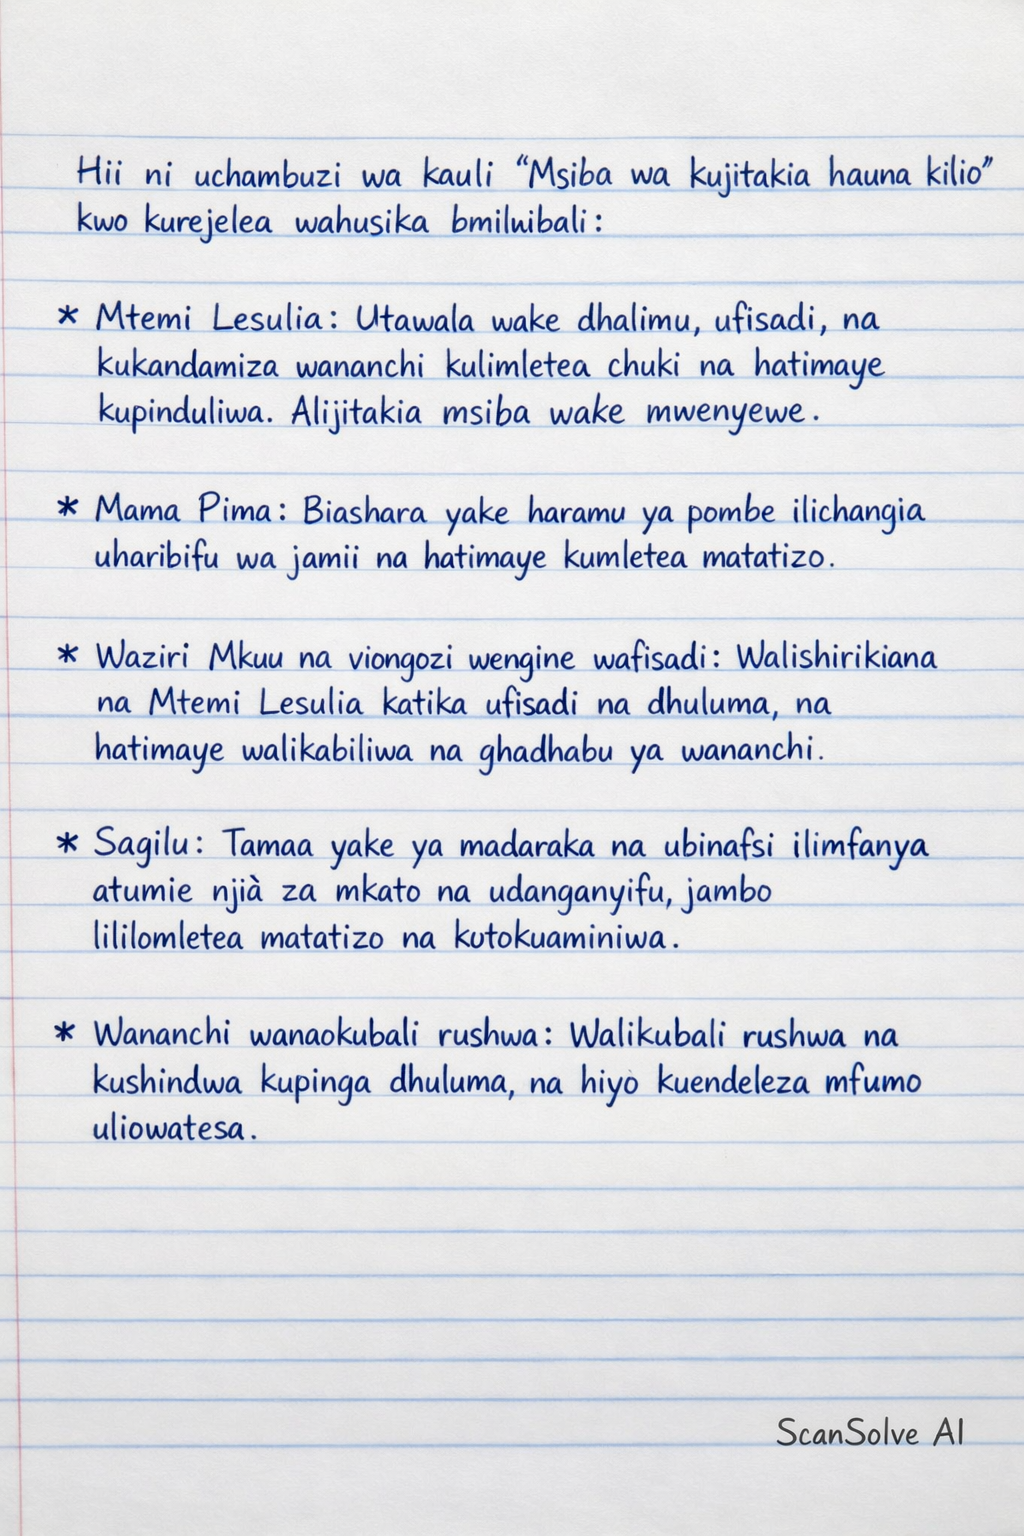 Hii ni uchambuzi wa kauli “Msiba wa kujitakia hauna kilio”
kwo kurejelea wahusika bmilnibali:
* Mtemi Lesulia: Utawala wake dhalimu, ufisadi, na
kukandamiza wananchi kulimletea chuki na hatimaye
kupinduliwa. Alijitakia msiba wake mwenyewe.
* Mama Pima: Biashara yake haramu ya pombe ilichangia
uharibifu wa jamii na hatimaye kumletea matatizo.
* Waziri Mkuu na viongozi wengine wafisadi: Walishirikiana
na Mtemi Lesulia katika ufisadi na dhuluma, na
hatimaye walikabiliwa na ghadhabu ya wananchi.
* Sagilu: Tamaa yake ya madaraka na ubinafsi ilimfanya
atumie njià za mkato na udanganyifu, jambo
lililomletea matatizo na kutokuaminiwa.
* Wananchi wanaokubali rushwa: Walikubali rushwa na
kushindwa kupinga dhuluma, na hiyo kuendeleza mfumo
uliowatesa.
ScanSolve AI